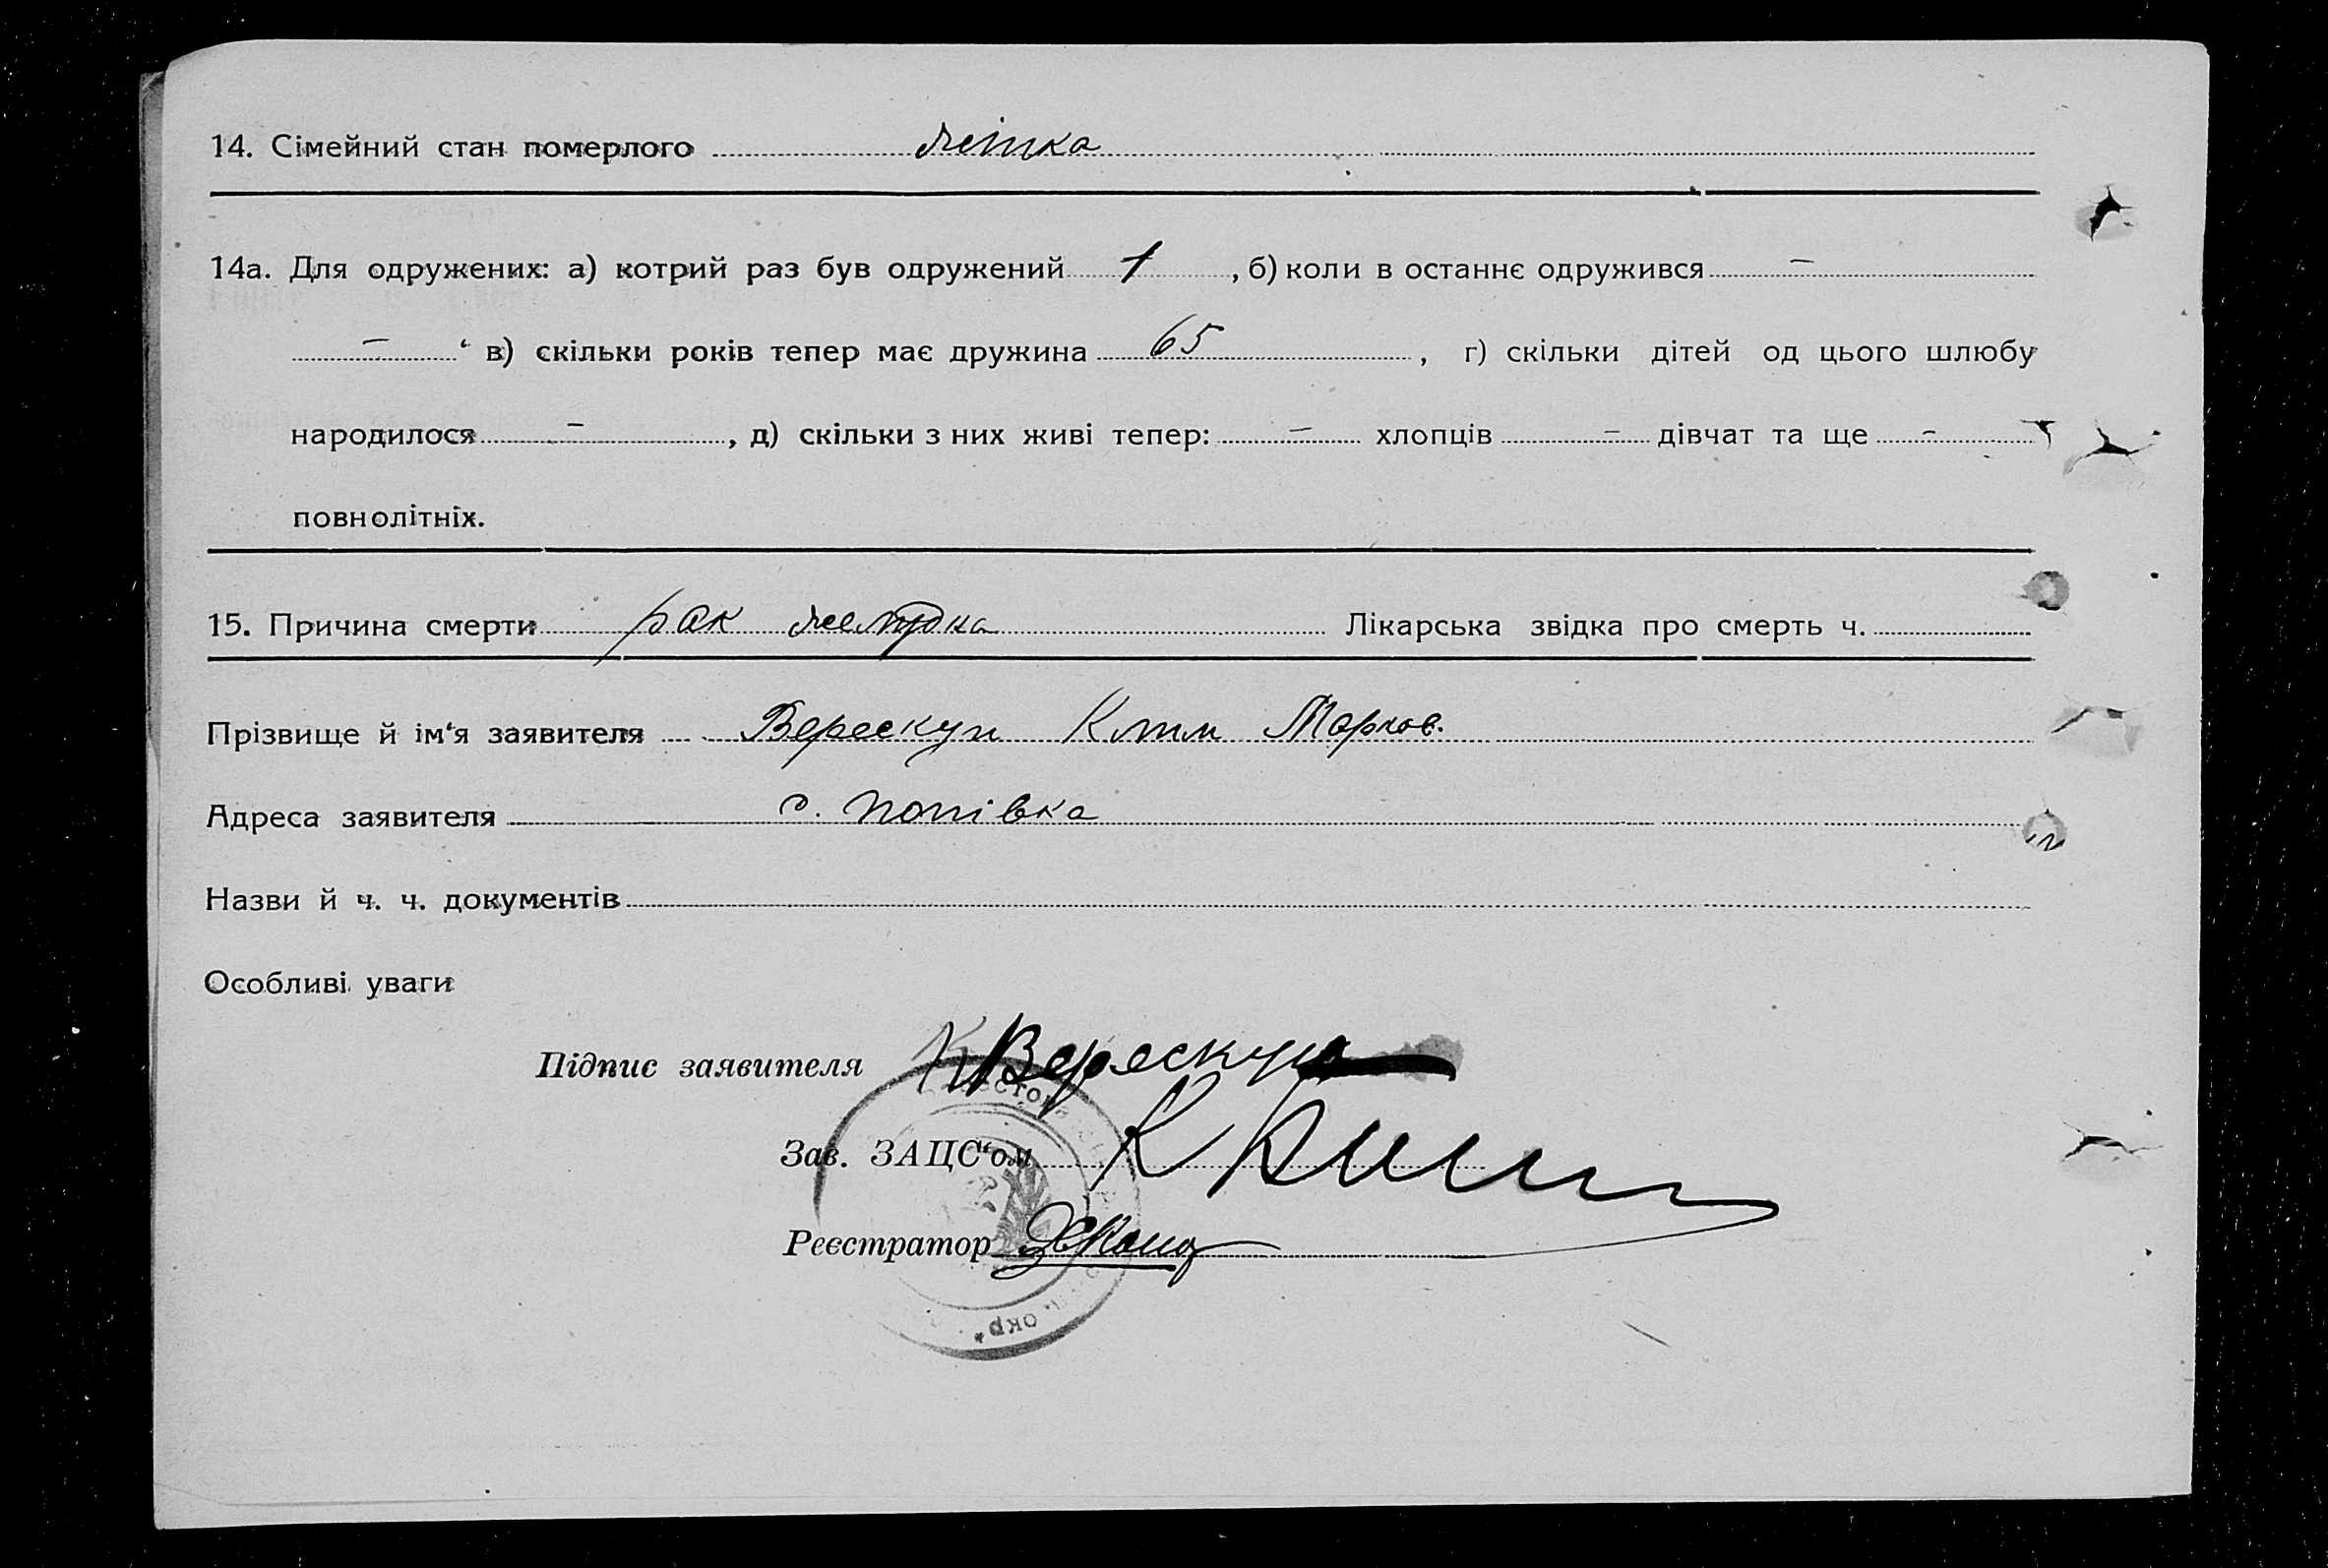 14. Сімейний стан померлого
14а. Для одружених: а) котрий раз був одружений 1 , б) коли в останнє одружився –
– ‘ в) скільки років тепер має дружина 65 , г) скільки дітей од цього шлюбу
народилося – , д) скільки з них живі тепер: – хлопців – дівчат та ще –
повнолітніх.
15. Причина смерти рак желудка Лікарська звідка про смерть ч.
Прізвище й ім‘я заявителя Верескун Клим Марков.
Адреса заявителя с. Попівка
Назви й ч. ч. документів
Особливі уваги
Підпис заявителя К Верескун
Зав. ЗАЦС‘ом
Реєстратор
окр*